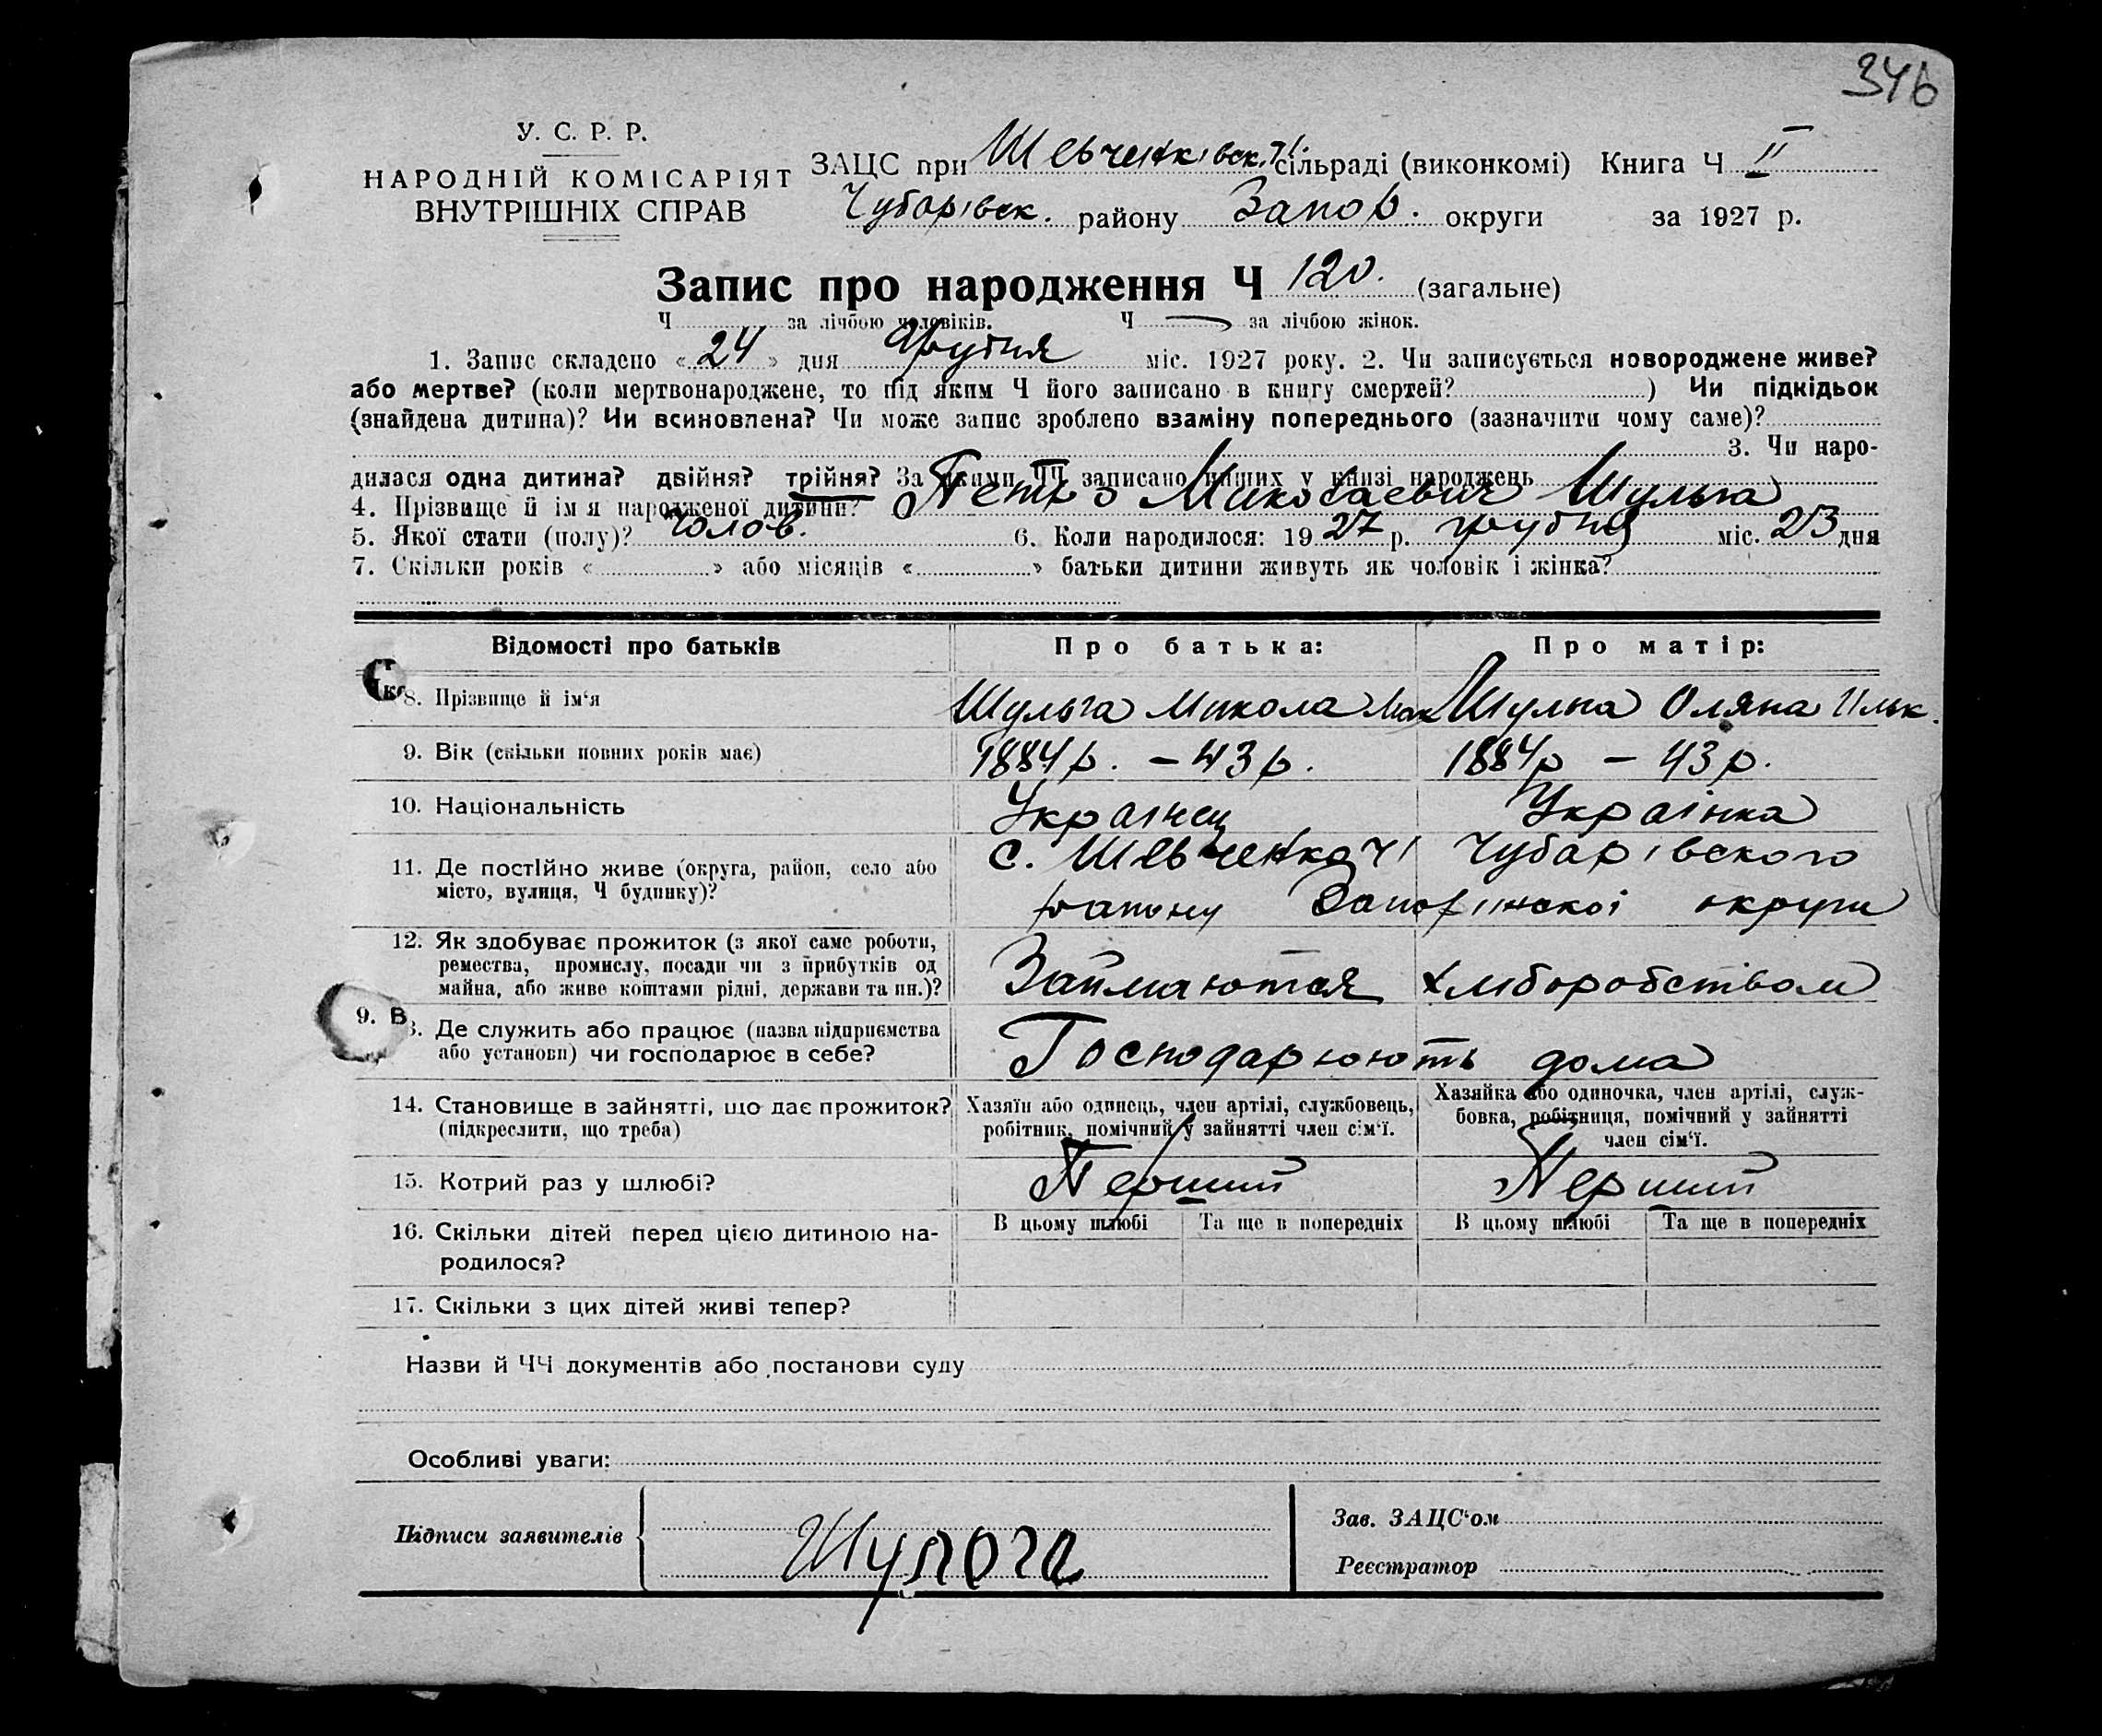 346
У. С. Р. Р.
НАРОДНІЙ КОМІСАРІЯТ
ВНУТРІШНІХ СПРАВ
ЗАЦС при Шевченківськ. сільраді (виконкомі) Книга Ч II
Чубарівск. району Запор. округи за 1927 р.
Запис про народження Ч 120. (загальне)
Ч за лічбою чоловіків. Ч за лічбою жінок.
1. Запис складено «24» дня Грудня міс. 1927 року. 2. Чи записується новороджене живе?
або мертве? (коли мертвонароджене, то під яким Ч його записано в книгу смертей? ) Чи підкідьок
(знайдена дитина)? Чи всиновлена? Чи може запис зроблено взаміну попереднього (зазначити чому саме)?
3. Чи наро-
дилася одна дитина? двійня? трійня? За якими ЧЧ записано інших у книзі народжень
4. Прізвище й ім'я народженої дитини? Петро Миколаевич Шульга
5. Якої стати (полу)? чолов. 6. Коли народилося: 1927 р. грудня міс. 23 дня
7. Скільки років « » або місяців « » батьки дитини живуть як чоловік і жінка?
Відомості про батьків Про батька: Про матір:
8. Прізвище й ім'я Шульга Микола Шулга Оляна Ильк.
9. Вік (скільки повних років має) 1884р. – 43р. 1884р – 43р.
10. Національність Украінец Украінка
11. Де постійно живе (округа, район, село або
місто, вулиця, Ч будинку)?
с. Шевченкові Чубарівского
району округи
12. Як здобуває прожиток (з якої саме роботи,
ремества, промислу, посади чи з прибутків од
майна, або живе коштами рідні, держави та ин.)?
Займаются хліборобством
9. В
3. Де служить або працює (назва підприємства
або установи) чи господарює в себе?
Господарюють дома
14. Становище в зайнятті, що дає прожиток?
(підкреслити, що треба)
Хазяїн або одинець, член артілі, службовець,
робітник, помічний у зайнятті член сім'ї.
Хазяйка або одиночка, член артілі, служ-
бовка, робітниця, помічний у зайнятті
член сім'ї.
15. Котрий раз у шлюбі? Перший Перший
16. Скільки дітей перед цією дитиною на-
родилося?
В цьому шлюбі Та ще в попередніх В цьому шлюбі Та ще в попередніх
17. Скільки з цих дітей живі тепер?
Назви й ЧЧ документів або постанови суду
Особливі уваги:
Підписи заявителів Шулога
Зав. ЗАЦС'ом
Реєстратор